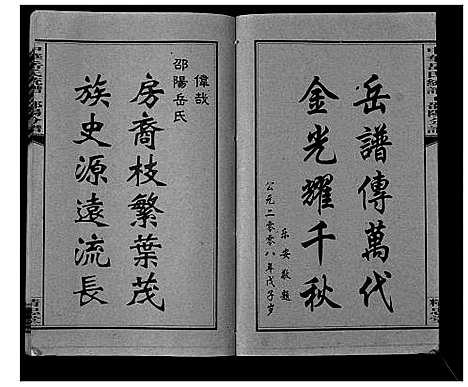 岳譜傳萬代
金光耀千秋
乐安敬題
公元二〇〇八年戊子岁
偉哉
邵陽岳氏
房裔枝繁葉茂
族史源遠流長